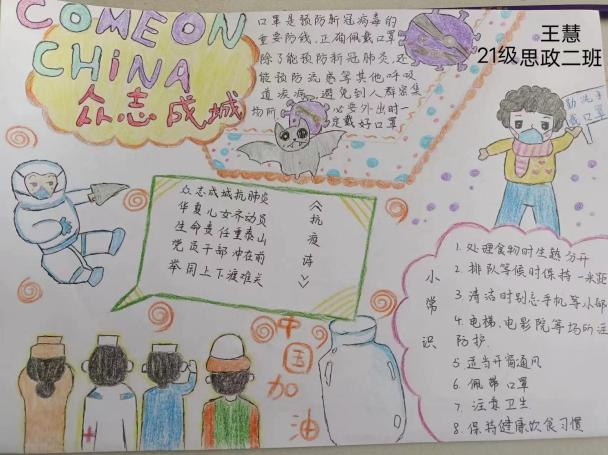 COME ON
CHINA
众志成城
口罩是预防新冠病毒的
重要防线,正确佩戴口罩
除了能预防新冠肺炎,还
能预防流感等其他呼吸
道疾病,避免到人群密集
场所 必要外出时一
定戴好口罩
王慧
21级思政二班
勤洗手
戴口罩
众志成城抗肺炎
华夏儿女齐动员
生命责任重泰山
党员干部冲在前
举国上下渡难关
《抗疫诗》
小常识
1.处理食物时生熟分开
2.排队等候时保持一米距
3.清洁时别忘手机等小部
4.电梯、电影院等场所注
防护.
5.适当开窗通风
6.佩带口罩
7.注意卫生
8.保持健康饮食习惯
中国加油